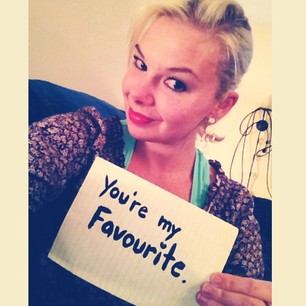 You're my
Favourite.